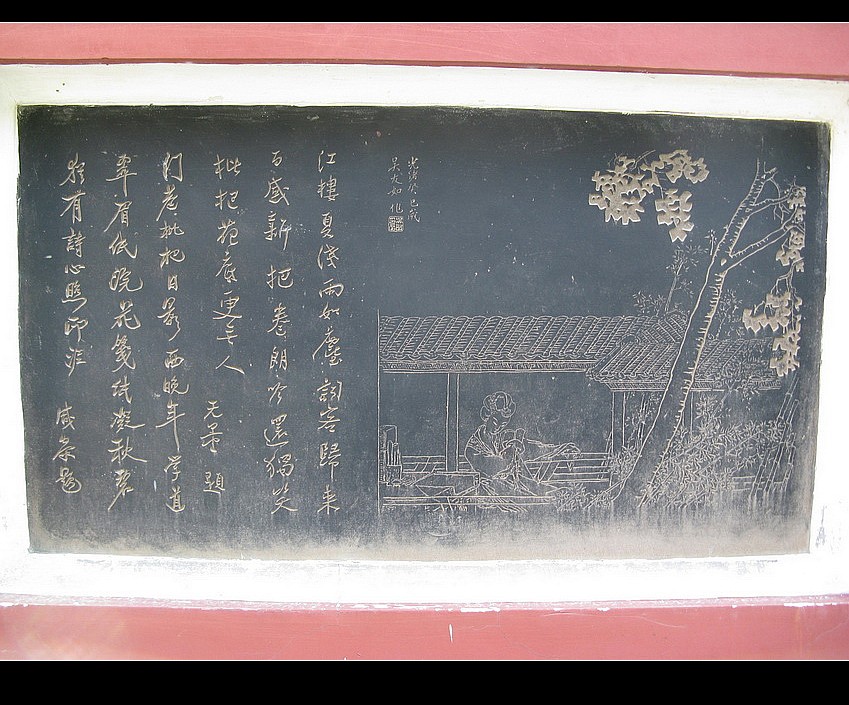 光緒癸巳歲
吳友如作
江樓夏淺雨如塵詞客歸來
百感新把卷朗吟還獨笑
枇杷花底更无人 无量題
门巷枇杷日影西晚年学道
翠眉低浣花箋紙凝秋碧
猶有詩心照印泥 咸荣題